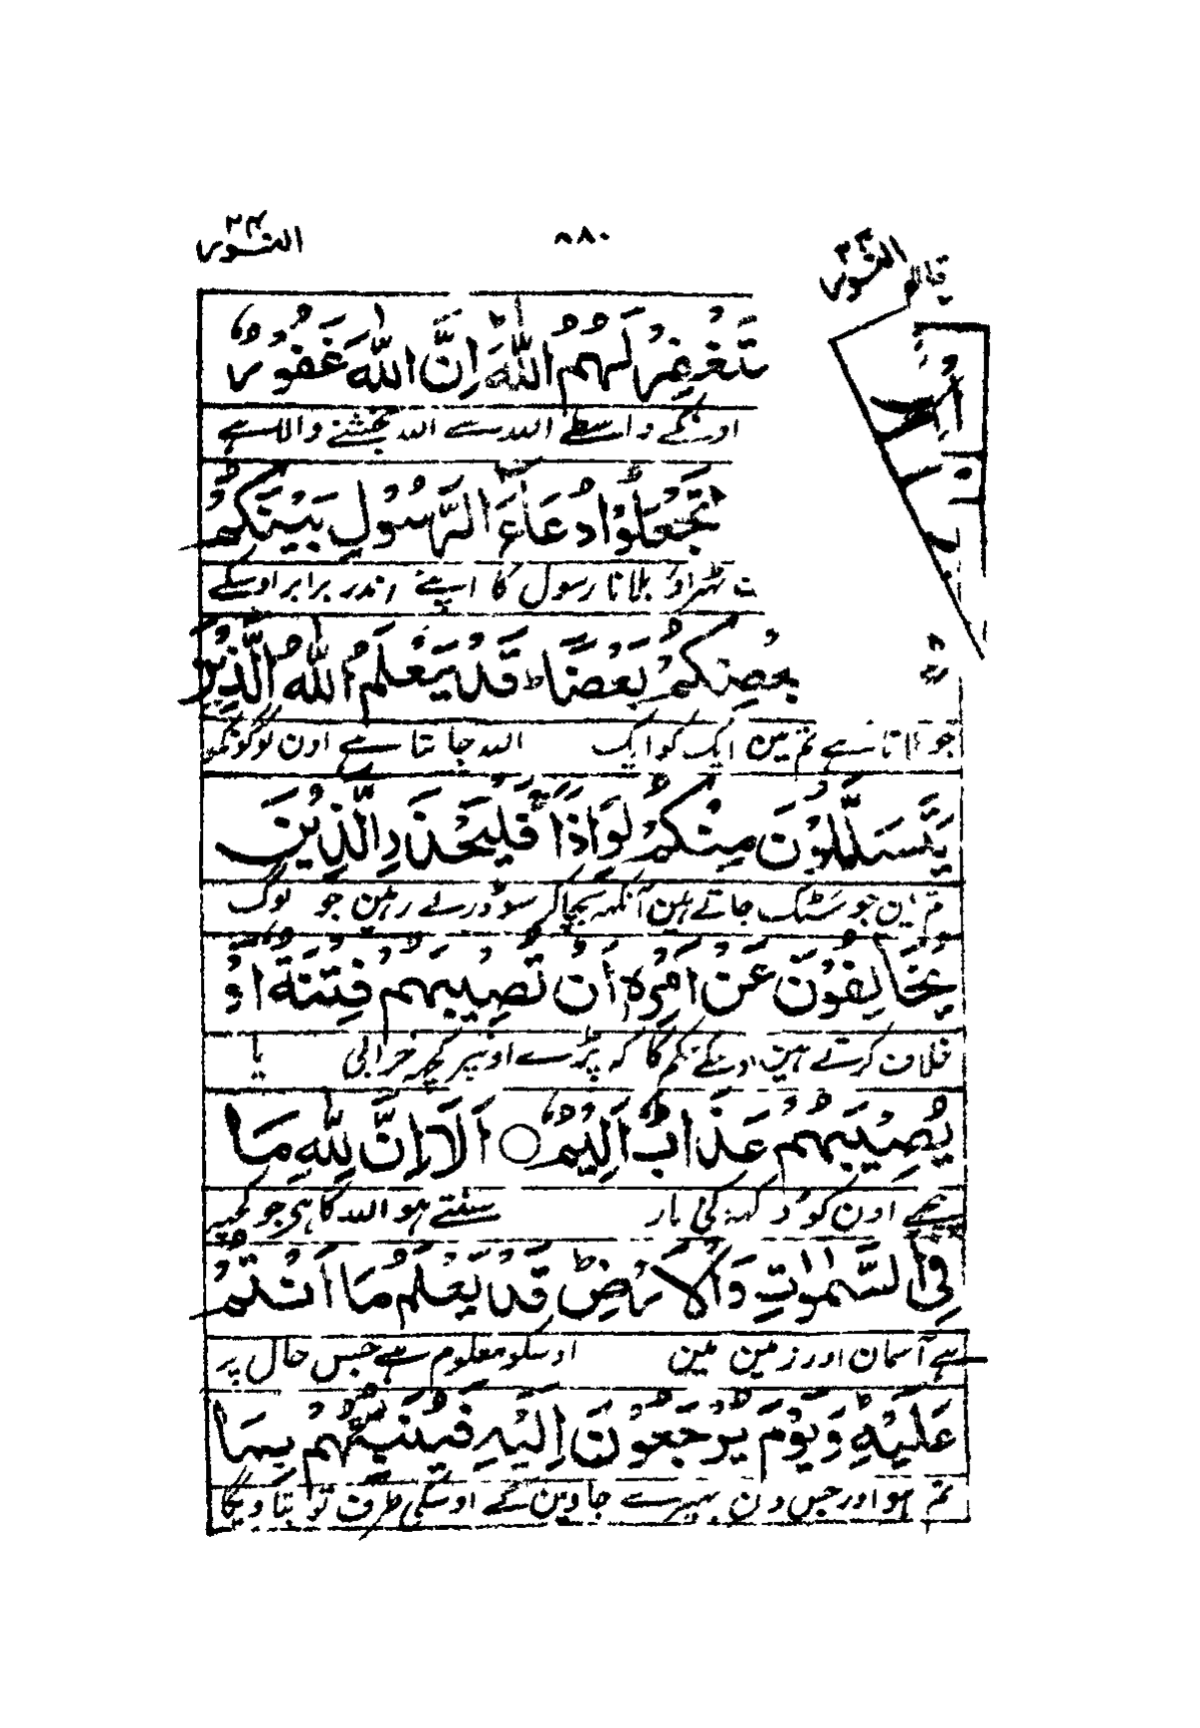 النور ۲۴
۸۸۰
النور ۲۴
تَغْفِرْ لَهُمُ اللّٰهَ ؕ اِنَّ اللّٰهَ غَفُوْرٌ
اونکے واسطے اللہ سے اللہ بخشنے والا ہے
تَجْعَلُوْا دُعَآءَ الرَّسُوْلِ بَيْنَكُمْ
ٹھراؤ بلانا رسول کا اپنے اندر برابر اوسکے
بَعْضِكُمْ بَعْضًا ؕ قَدْ يَعْلَمُ اللّٰهُ الَّذِيْنَ
جو بلاتا ہے تم مین ایک کو ایک اللہ جانتا ہے اون لوگونکو
يَتَسَلَّلُوْنَ مِنْكُمْ لِوَاذًا ۚ فَلْيَحْذَرِ الَّذِيْنَ
تم مین جو سٹک جاتے ہین آنکھ بچا کر سو ڈرتے رہین جو لوگ
يُخَالِفُوْنَ عَنْ اَمْرِهٖ اَنْ تُصِيْبَهُمْ فِتْنَةٌ اَوْ
خلاف کرتے ہین اونکے حکم کا کہ پڑے اونپر کچھ خرابی یا
يُصِيْبَهُمْ عَذَابٌ اَلِيْمٌ ○ اَلَآ اِنَّ لِلّٰهِ مَا
پہنچے اون کو دکھ کی مار سنتے ہو اللہ کا ہی جو کچھ
فِي السَّمٰوٰتِ وَالْاَرْضِ ؕ قَدْ يَعْلَمُ مَا اَنْتُمْ
ہے آسمان اور زمین مین اوسکو معلوم ہے جس حال پر
عَلَيْهِ ؕ وَيَوْمَ يُرْجَعُوْنَ اِلَيْهِ فَيُنَبِّئُهُمْ بِمَا
تم ہو اور جس دن پھیرے جاوین گے اوسکی طرف تو بتا ویگا